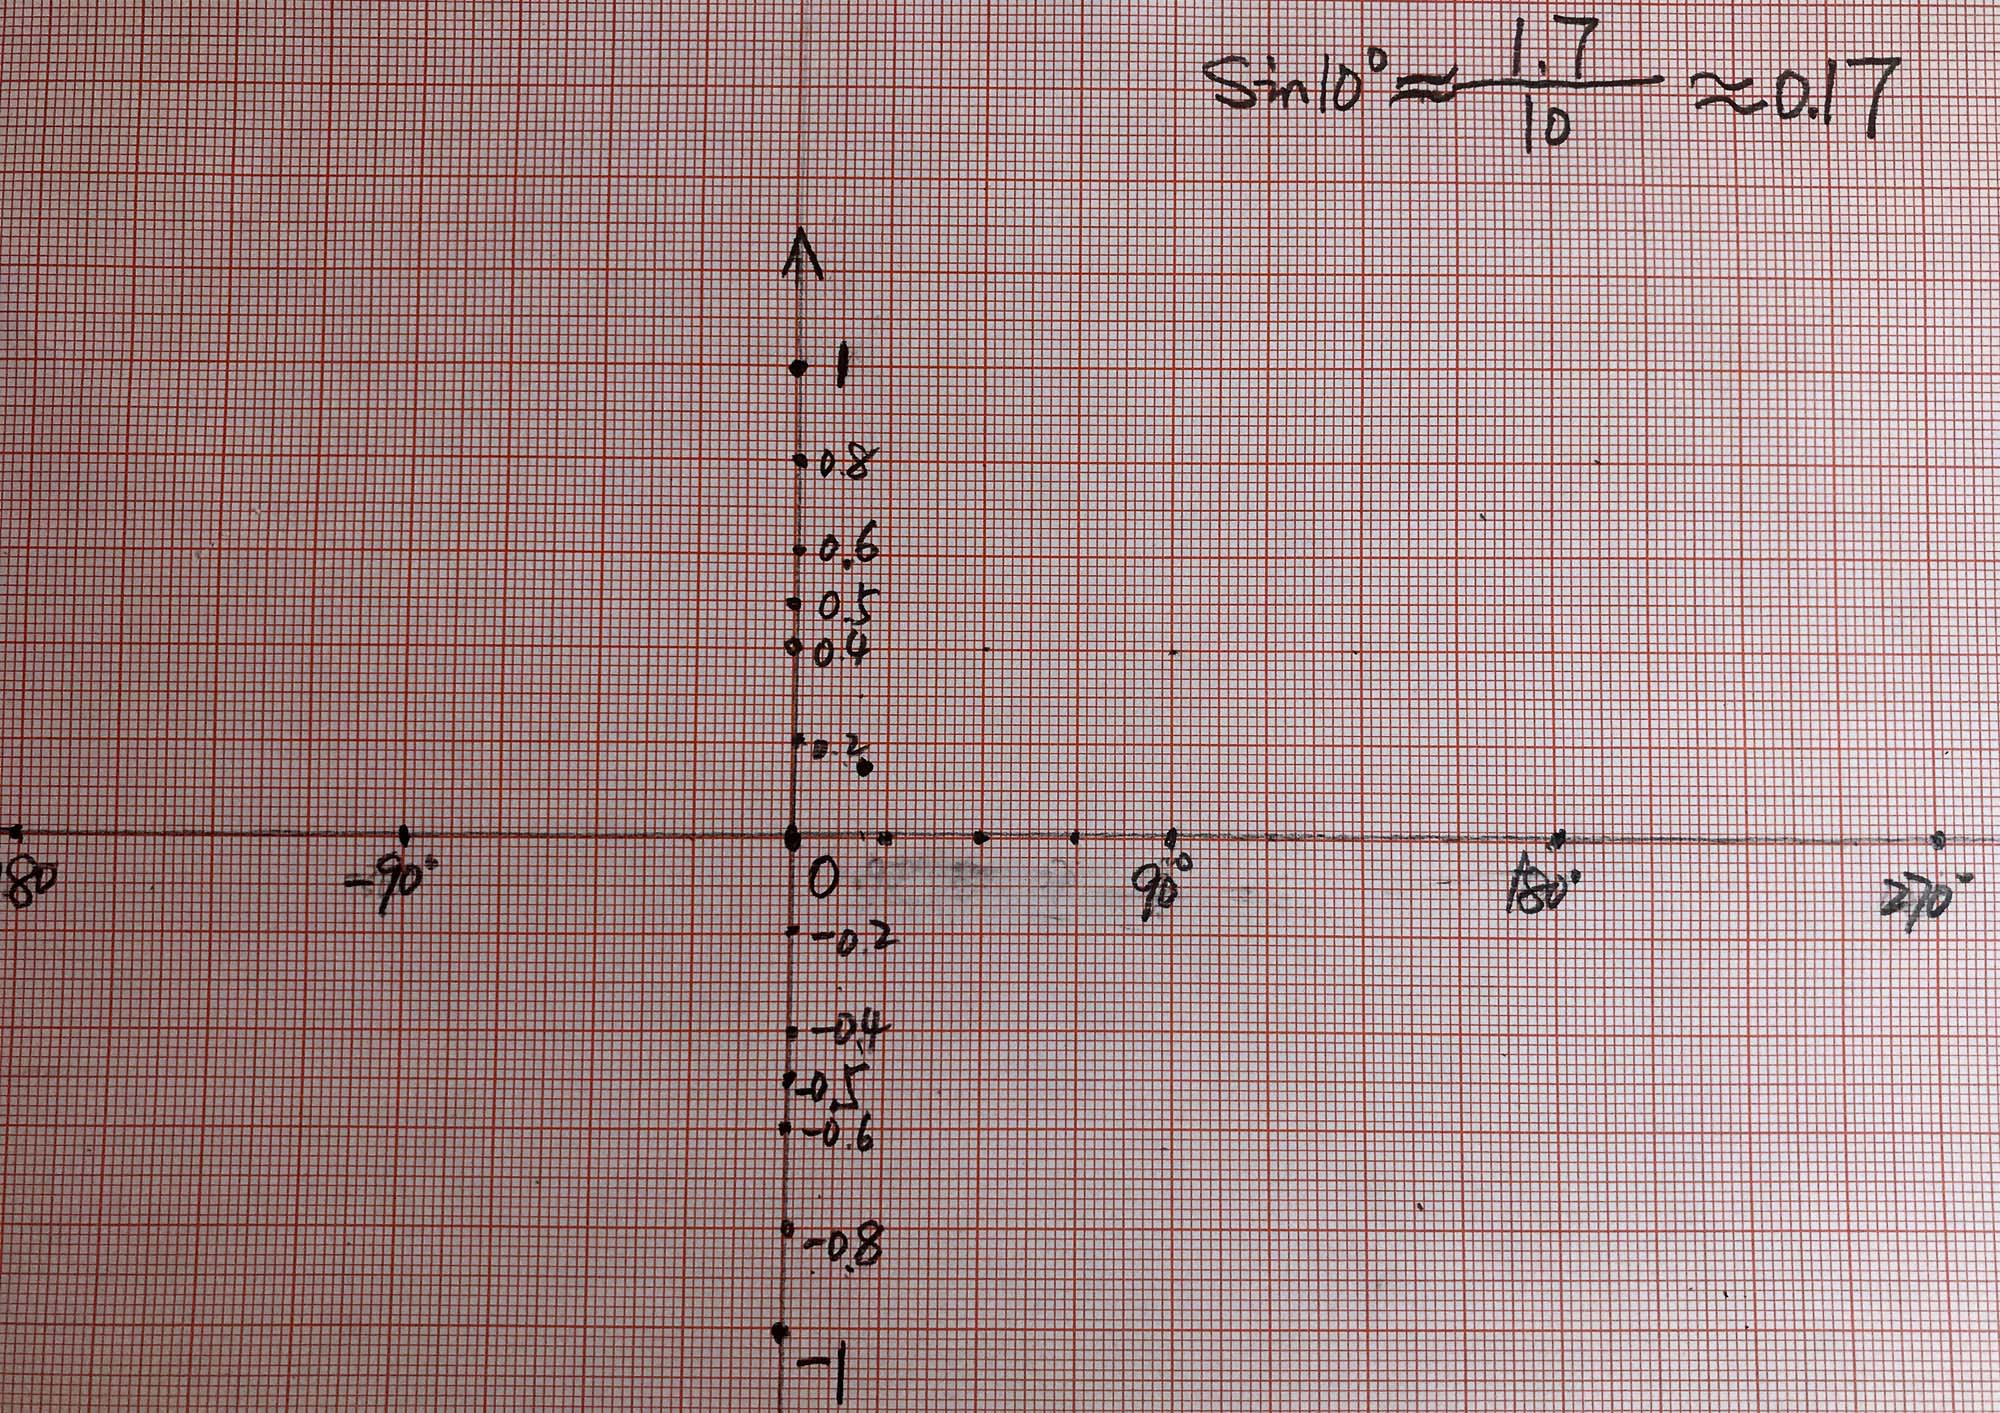 Sin10° ≈ 1.7/10 ≈ 0.17
1
0.8
0.6
0.5
0.4
0.2
80 -90° 0 90° 180° 270°
-0.2
-0.4
-0.5
-0.6
-0.8
-1